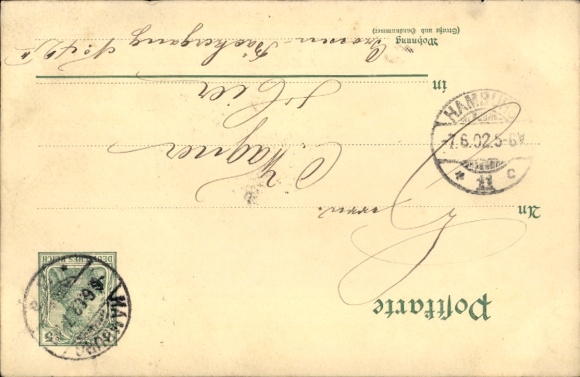 Postkarte
An
Herrn
O. Wagner
in
Hier
Wohnung
(Straße und Hausnummer)
Grossen-Bäckergang No 49
HAMBURG
7.6.02.5-6
11 c
DEUTSCHES REICH
5
HAMBURG